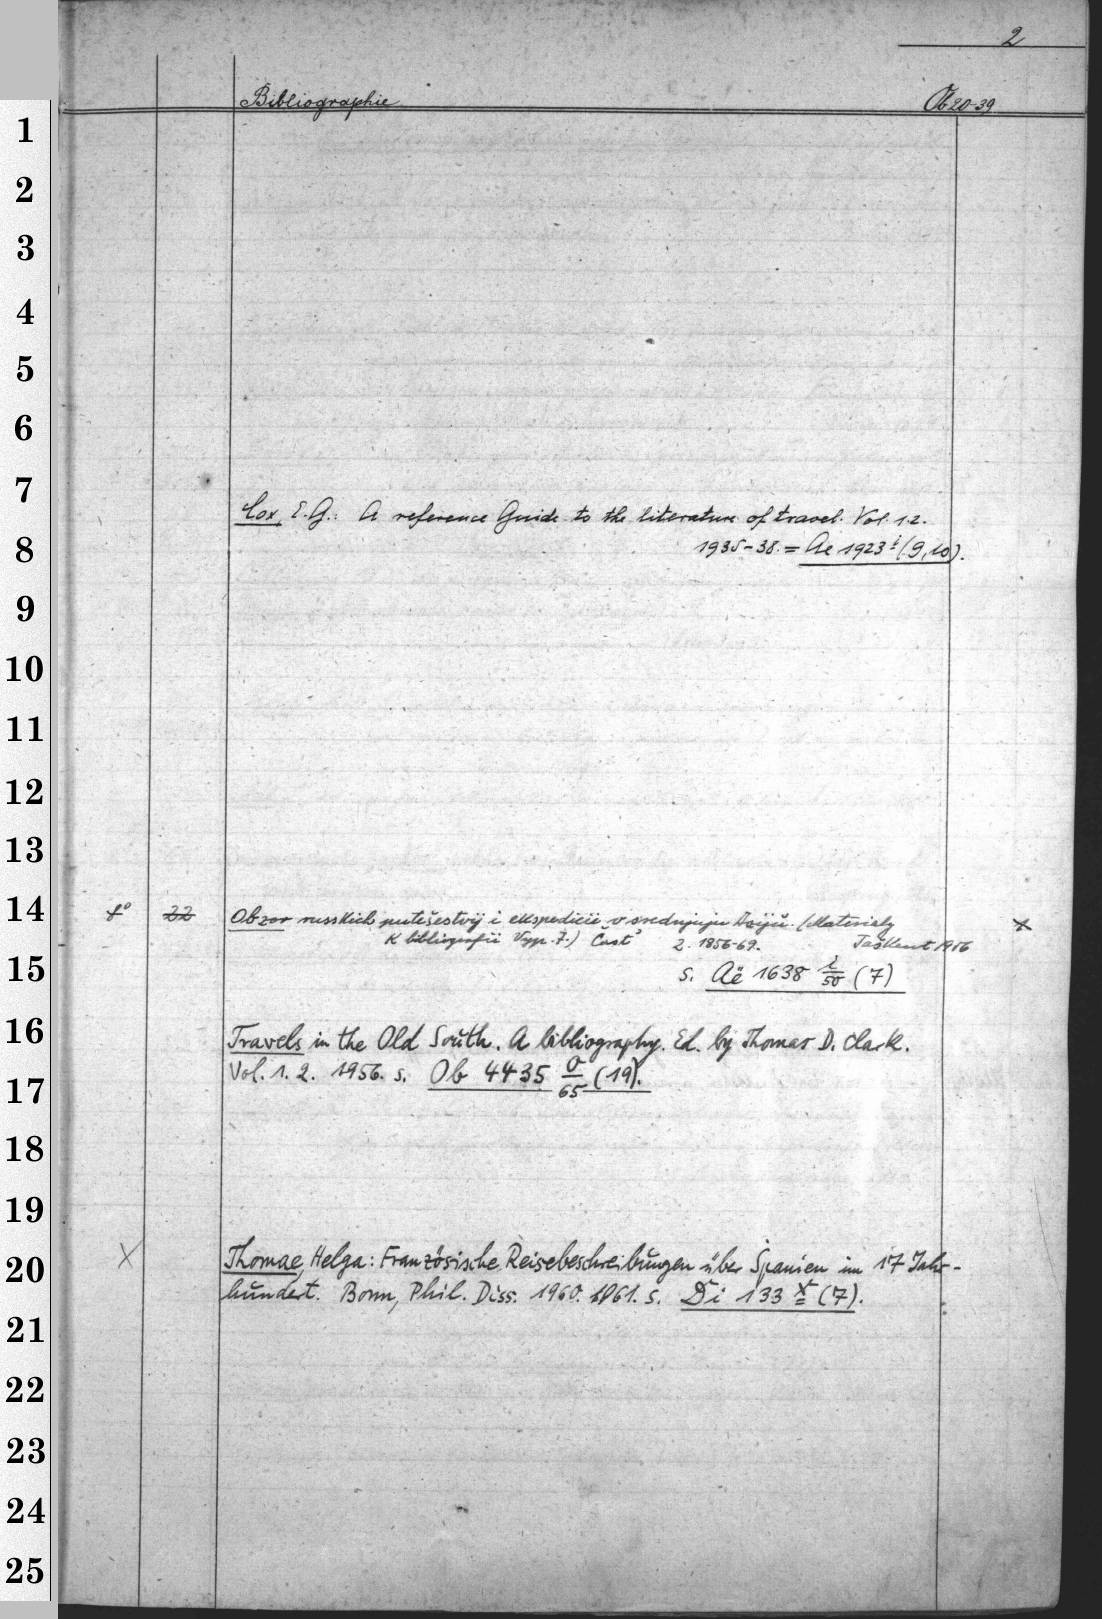 2
Bibliographie Ob 20-39
1
2
3
4
5
6
7
Cox, E.G.: A reference Guide to the literature of travel. Vol. 1.2.
8
1935-38. = Ae 1923 i (9,10).
9
10
11
12
13
14
f° 22 Obzor russkich putešestvij i ekspedicii v srednjuju Aziju. (Materialy x
K bibliografii Vyp. 7.) Čast' 2. 1856-69. Taškent 1956
15
s. Aë 1638 i/50 (7)
16
Travels in the Old South. A bibliography. Ed. by Thomas D. Clark.
17
Vol. 1. 2. 1956. s. Ob 4435 o/65 (19).
18
19
20
X Thomae, Helga: Französische Reisebeschreibungen über Spanien im 17 Jahr-
hundert. Bonn, Phil. Diss. 1960. 1961. s. Di 133 x (7).
21
22
23
24
25